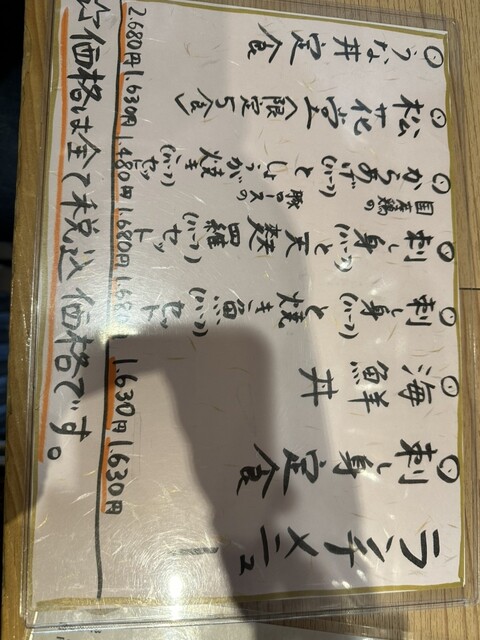 ランチメニュー
○刺し身定食
1.630円
○海鮮丼
1.630円
○刺し身(ハーフ)と焼き魚(ハーフ)セット
1.680円
○刺し身(ハーフ)と天麩羅(ハーフ)セット
1.680円
○国産鶏のからあげ(ハーフ)と豚ロースのしょうが焼き(ハーフ)セット
1.480円
○松花堂〈限定5食〉
1.630円
○うな丼定食
2.680円
☆価格は全て税込価格です。